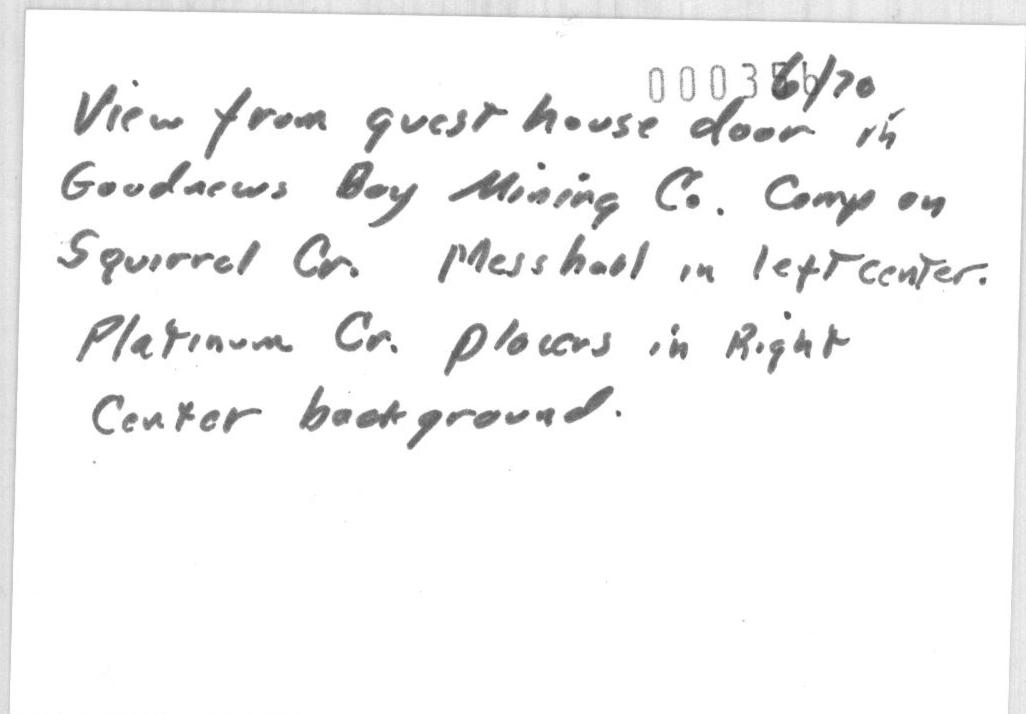 6/70
View from guest house door in
Goodnews Bay Mining Co. Camp on
Squirrel Cr. Messhall in left center.
Platinum Cr. placers in Right
Center background.